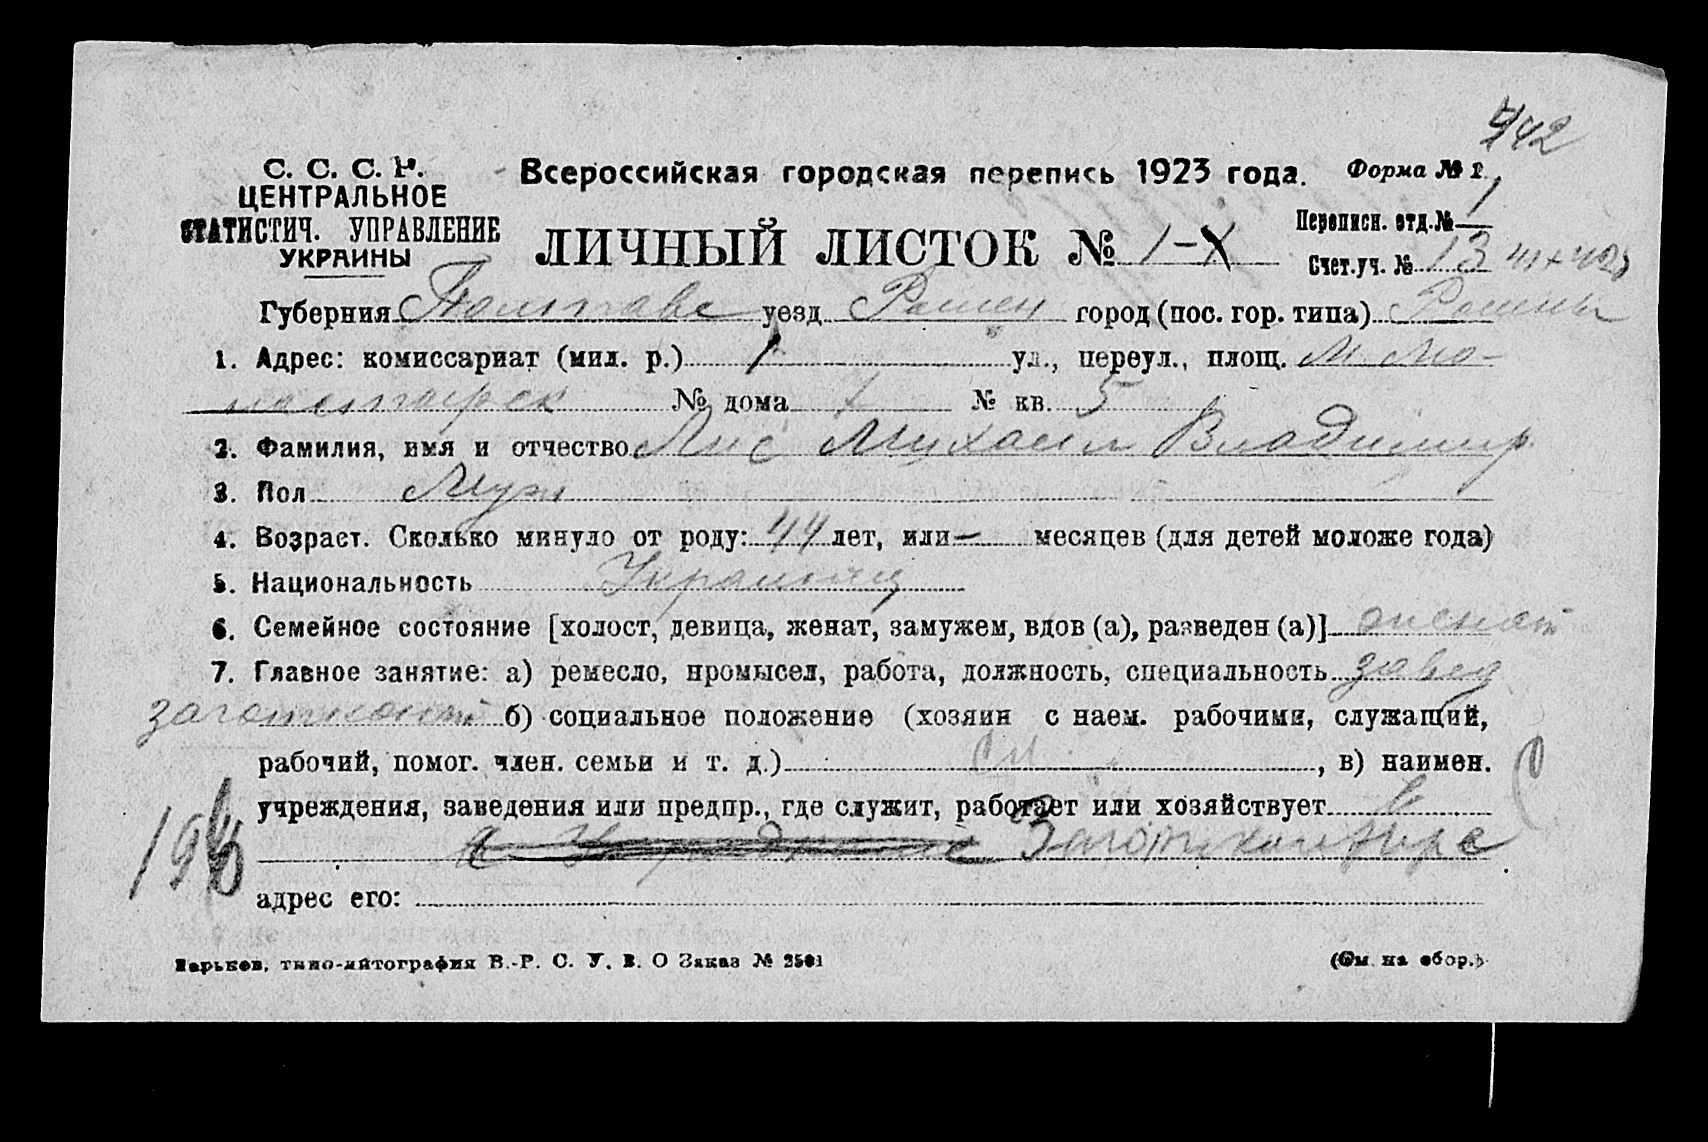 442
С. С. С. Р.
ЦЕНТРАЛЬНОЕ
СТАТИСТИЧ. УПРАВЛЕНИЕ
УКРАИНЫ
Всероссийская городская перепись 1923 года.
Форма № 1.
ЛИЧНЫЙ ЛИСТОК № 1-
Переписн. отд. № 1
Счет.уч. № 13
Губерния Полтавс уезд Ромен город (пос. гор. типа) Ромены
1. Адрес: комиссариат (мил. р.) 1 ул., переул., площ. М. Мо-
настырск № дома № кв. 5
2. Фамилия, имя и отчество Лис Михаил Владимир
3. Пол Муж
4. Возраст. Сколько минуло от роду: 44 лет, или — месяцев (для детей моложе года)
5. Национальность Украинец
6. Семейное состояние [холост, девица, женат, замужем, вдов (а), разведен (а)] женат
7. Главное занятие: а) ремесло, промысел, работа, должность, специальность завед
заготконт б) социальное положение (хозяин с наем. рабочими, служащий,
рабочий, помог. член. семьи и т. д.) сл , в) наимен.
учреждения, заведения или предпр., где служит, работает или хозяйствует в
Заготконтора
196
адрес его:
Харьков, типо-литография В.-Р. С. У. В. О Заказ № 2501
(См. на обор.)